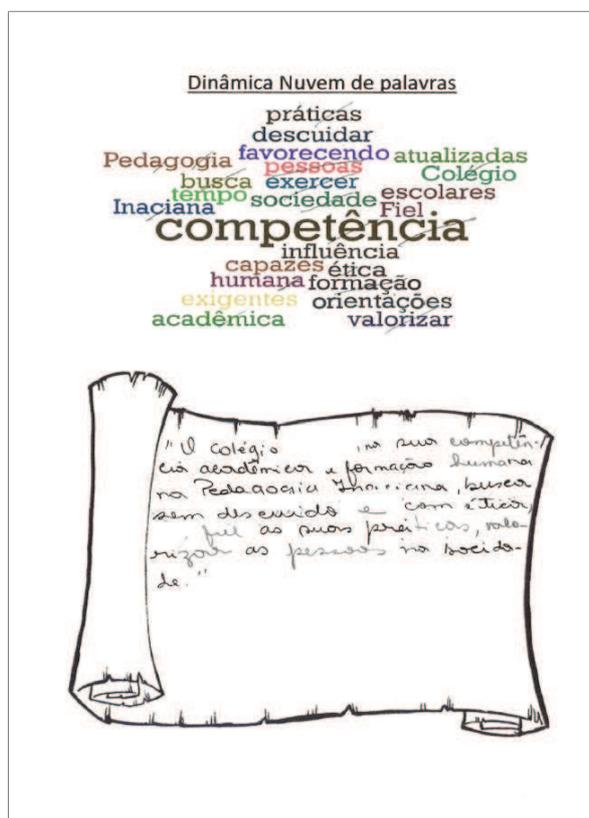 Dinâmica Nuvem de palavras
práticas
descuidar
Pedagogia favorecendo atualizadas
pessoas Colégio
busca exercer
tempo sociedade escolares
Inaciana Fiel
competência
influência
capazes ética
humana formação
exigentes orientações
acadêmica valorizar
"O Colégio , na sua competên-
cia acadêmica e formação humana
na Pedagogia Inaciana, busca
sem descuido e com ética,
fiel as suas práticas, valo-
rizar as pessoas na socieda-
de."